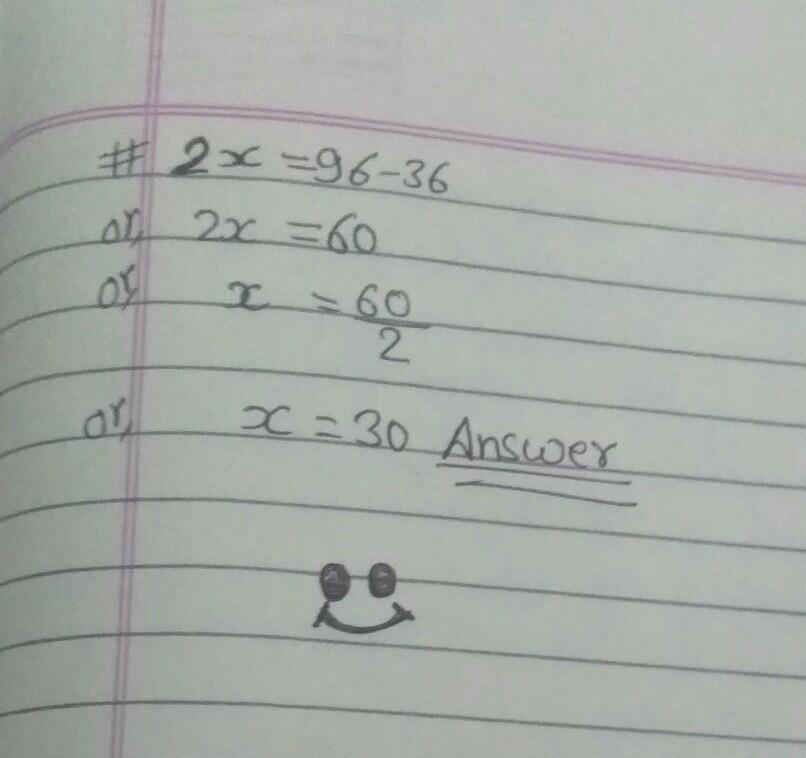 # 2x = 96-36
or, 2x = 60
or, x = 60/2
or, x = 30 Answer